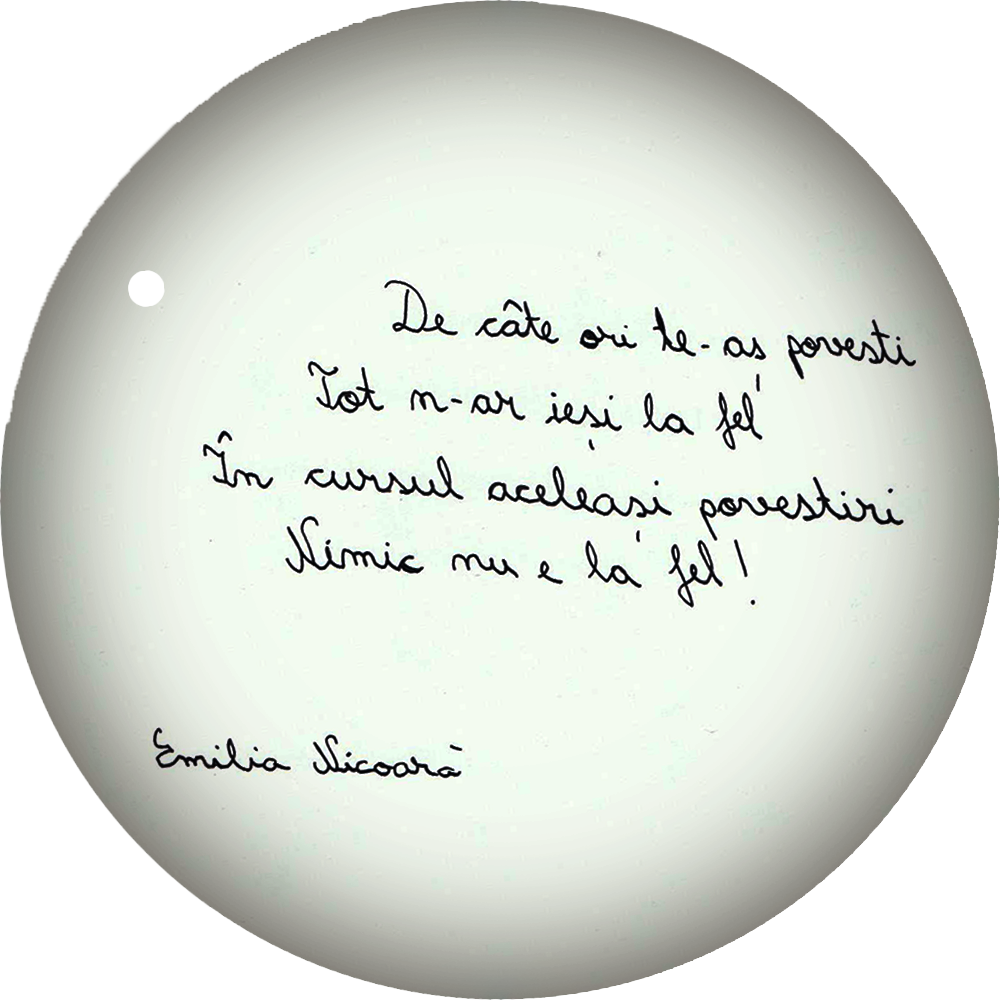 De câte ori te-aș povesti
Tot n-ar ieși la fel
În cursul aceleași povestiri
Nimic nu e la fel!
Emilia Nicoară